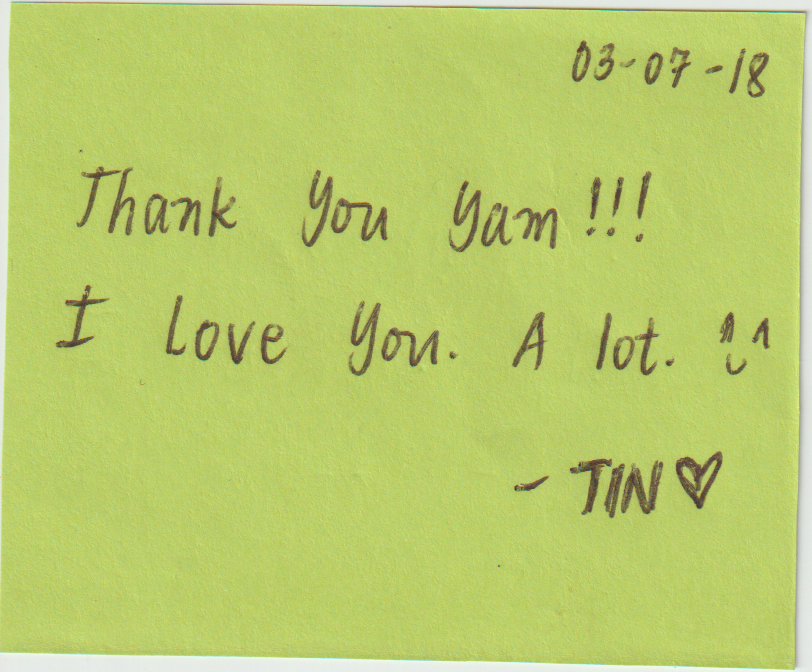 03-07-18
Thank You Yam!!!
I Love You. A lot. ^U^
- TIN ♡